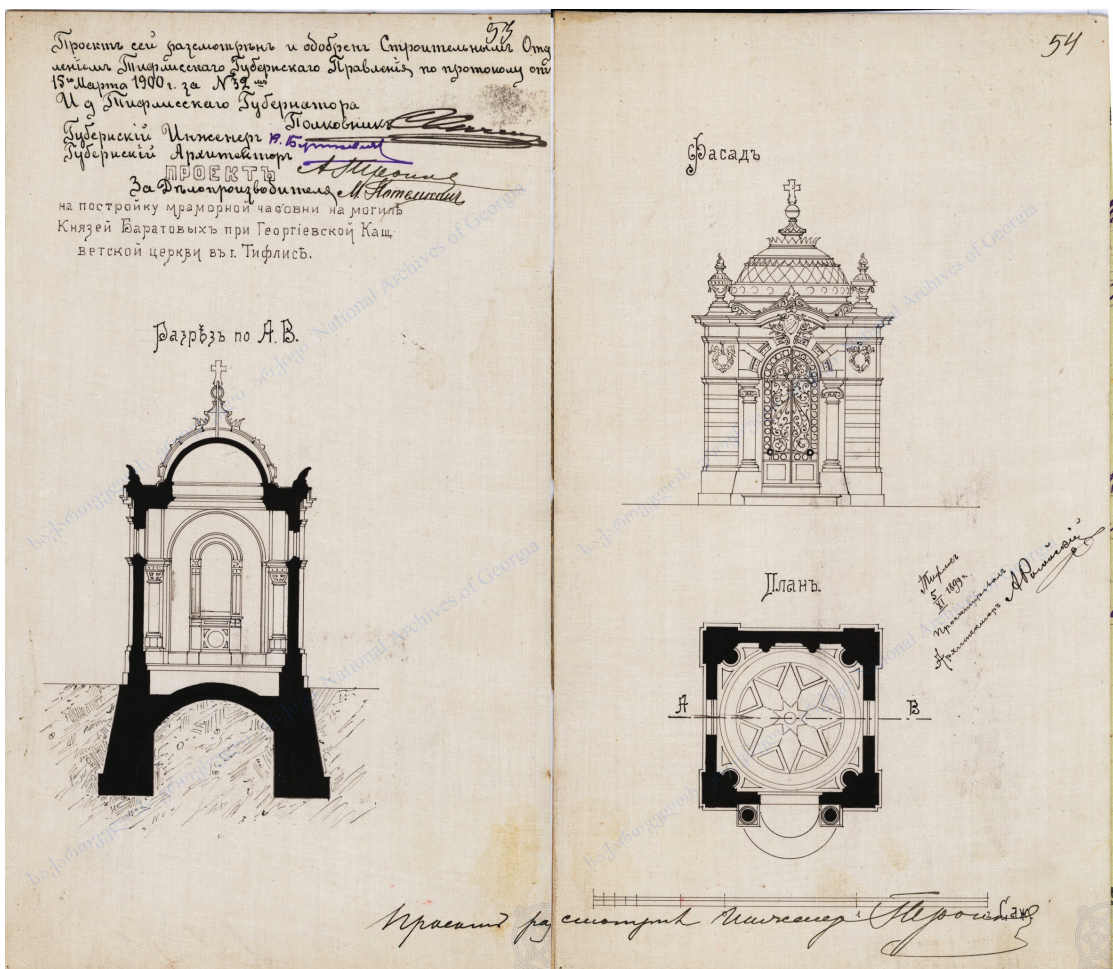 53
Проектъ сей разсмотрѣнъ и одобренъ Строительнымъ Отд
леніемъ Тифлисскаго Губернскаго Правленія, по протоколу отъ
15го Марта 1900 г. за N 32
И д Тифлисскаго Губернатора
Полковникъ
Губернскій Инженеръ
Губернскій Архитекторъ
ПРОЕКТЪ
За Дѣлопроизводителя
на постройку мраморной часовни на могилѣ
Князей Баратовыхъ при Георгіевской Каш
ветской церкви въ г. Тифлисѣ.
Разрѣзъ по А. В.
54
Фасадъ
Тифлисъ
5/XI 1899 г.
Проектировалъ
Архитекторъ
Планъ.
А
В
Проектъ разсмотрѣлъ Инженеръ
საქართველოს ეროვნული არქივი National Archives of Georgia